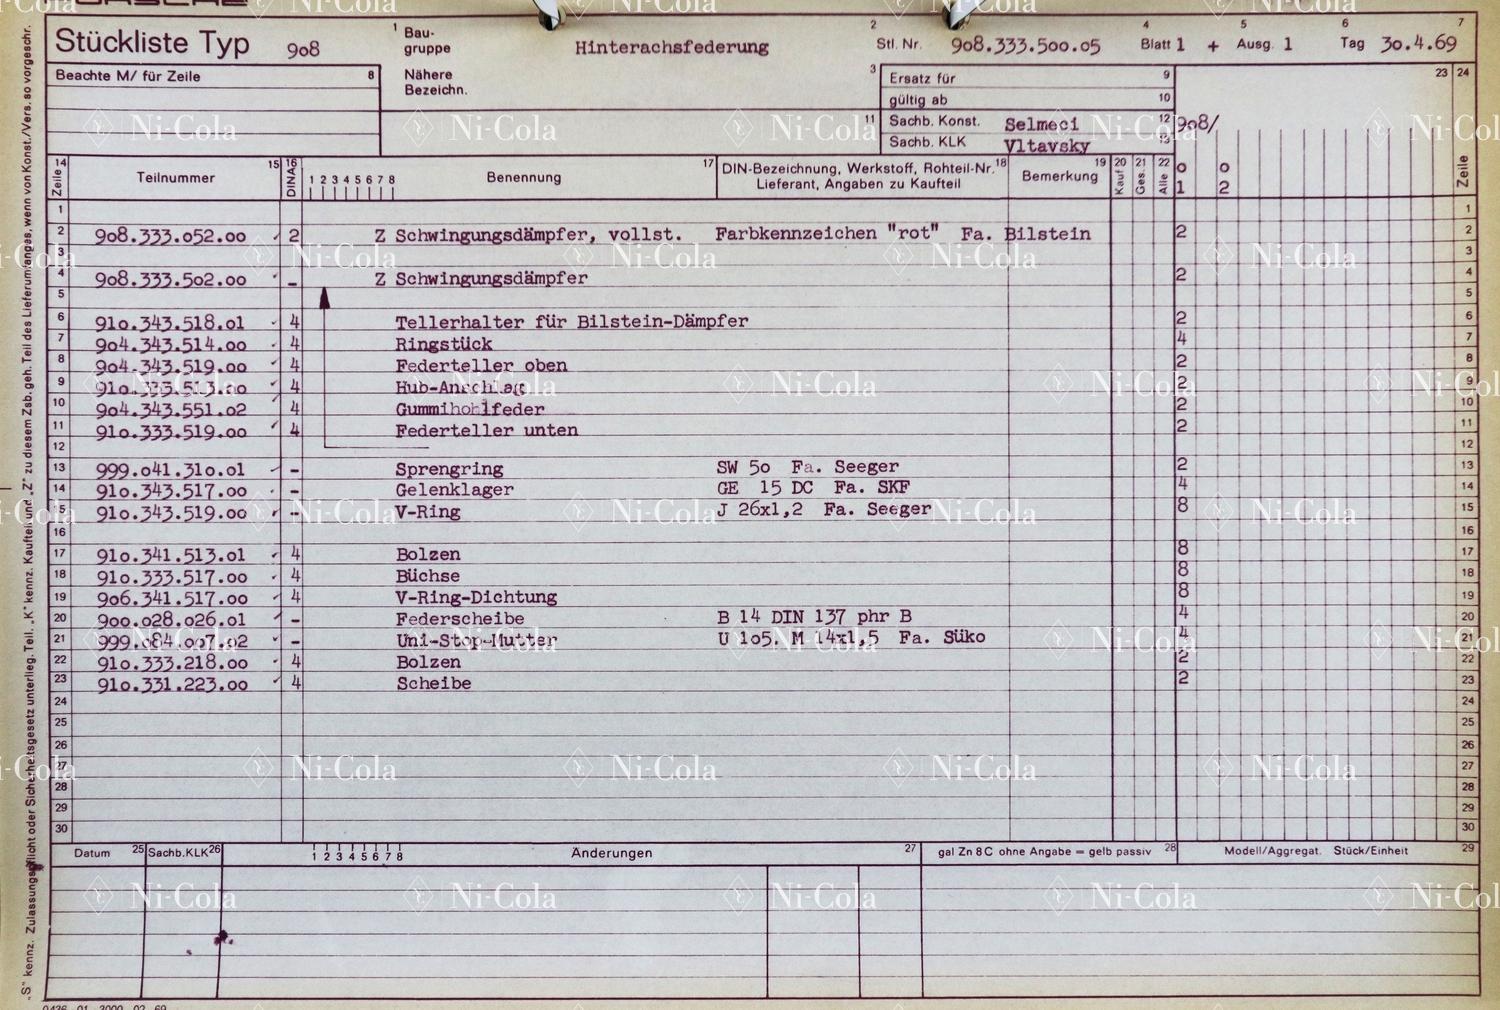 Stückliste Typ 908
1 Bau-gruppe Hinterachsfederung
2 Stl. Nr. 908.333.500.05
4 Blatt 1 +
5 Ausg. 1
6 Tag 30.4.69
7
Beachte M/ für Zeile 8
Nähere Bezeichn.
3
Ersatz für 9
gültig ab 10
11 Sachb. Konst. Selmeci 12
Sachb. KLK Vltavsky 13
908/
23 24
14 Zeile Teilnummer 15 DIN A 16 1 2 3 4 5 6 7 8 Benennung 17 DIN-Bezeichnung, Werkstoff, Rohteil-Nr. 18
Lieferant, Angaben zu Kaufteil
Bemerkung 19 Kauf 20 Ges. 21 Alle 22 01 02 Zeile
1 1
2 908.333.052.00 2 Z Schwingungsdämpfer, vollst. Farbkennzeichen "rot" Fa. Bilstein 2 2
3 3
4 908.333.502.00 - Z Schwingungsdämpfer 2 4
5 5
6 910.343.518.01 4 Tellerhalter für Bilstein-Dämpfer 2 6
7 904.343.514.00 4 Ringstück 4 7
8 904.343.519.00 4 Federteller oben 2 8
9 910.333.513.00 4 Hub-Anschlag 2 9
10 904.343.551.02 4 Gummihohlfeder 2 10
11 910.333.519.00 4 Federteller unten 2 11
12 12
13 999.041.310.01 - Sprengring SW 50 Fa. Seeger 2 13
14 910.343.517.00 - Gelenklager GE 15 DC Fa. SKF 4 14
15 910.343.519.00 - V-Ring J 26x1,2 Fa. Seeger 8 15
16 16
17 910.341.513.01 4 Bolzen 8 17
18 910.333.517.00 4 Büchse 8 18
19 906.341.517.00 4 V-Ring-Dichtung 8 19
20 900.028.026.01 - Federscheibe B 14 DIN 137 phr B 4 20
21 999.084.007.02 - Uni-Stop-Mutter U 105. M 14x1,5 Fa. Süko 4 21
22 910.333.218.00 4 Bolzen 2 22
23 910.331.223.00 4 Scheibe 2 23
24 24
25 25
26 26
27 27
28 28
29 29
30 30
Datum 25 Sachb.KLK 26 1 2 3 4 5 6 7 8 Änderungen 27 gal Zn 8 C ohne Angabe = gelb passiv 28 Modell/Aggregat. Stück/Einheit 29
„S" kennz. Zulassungspflicht oder Sicherheitsgesetz unterlieg. Teil. „K" kennz. Kaufteil und „Z" zu diesem Zsb. geh. Teil des Lieferumfanges, wenn von Konst./Vers. so vorgeschr.
Ni-Cola